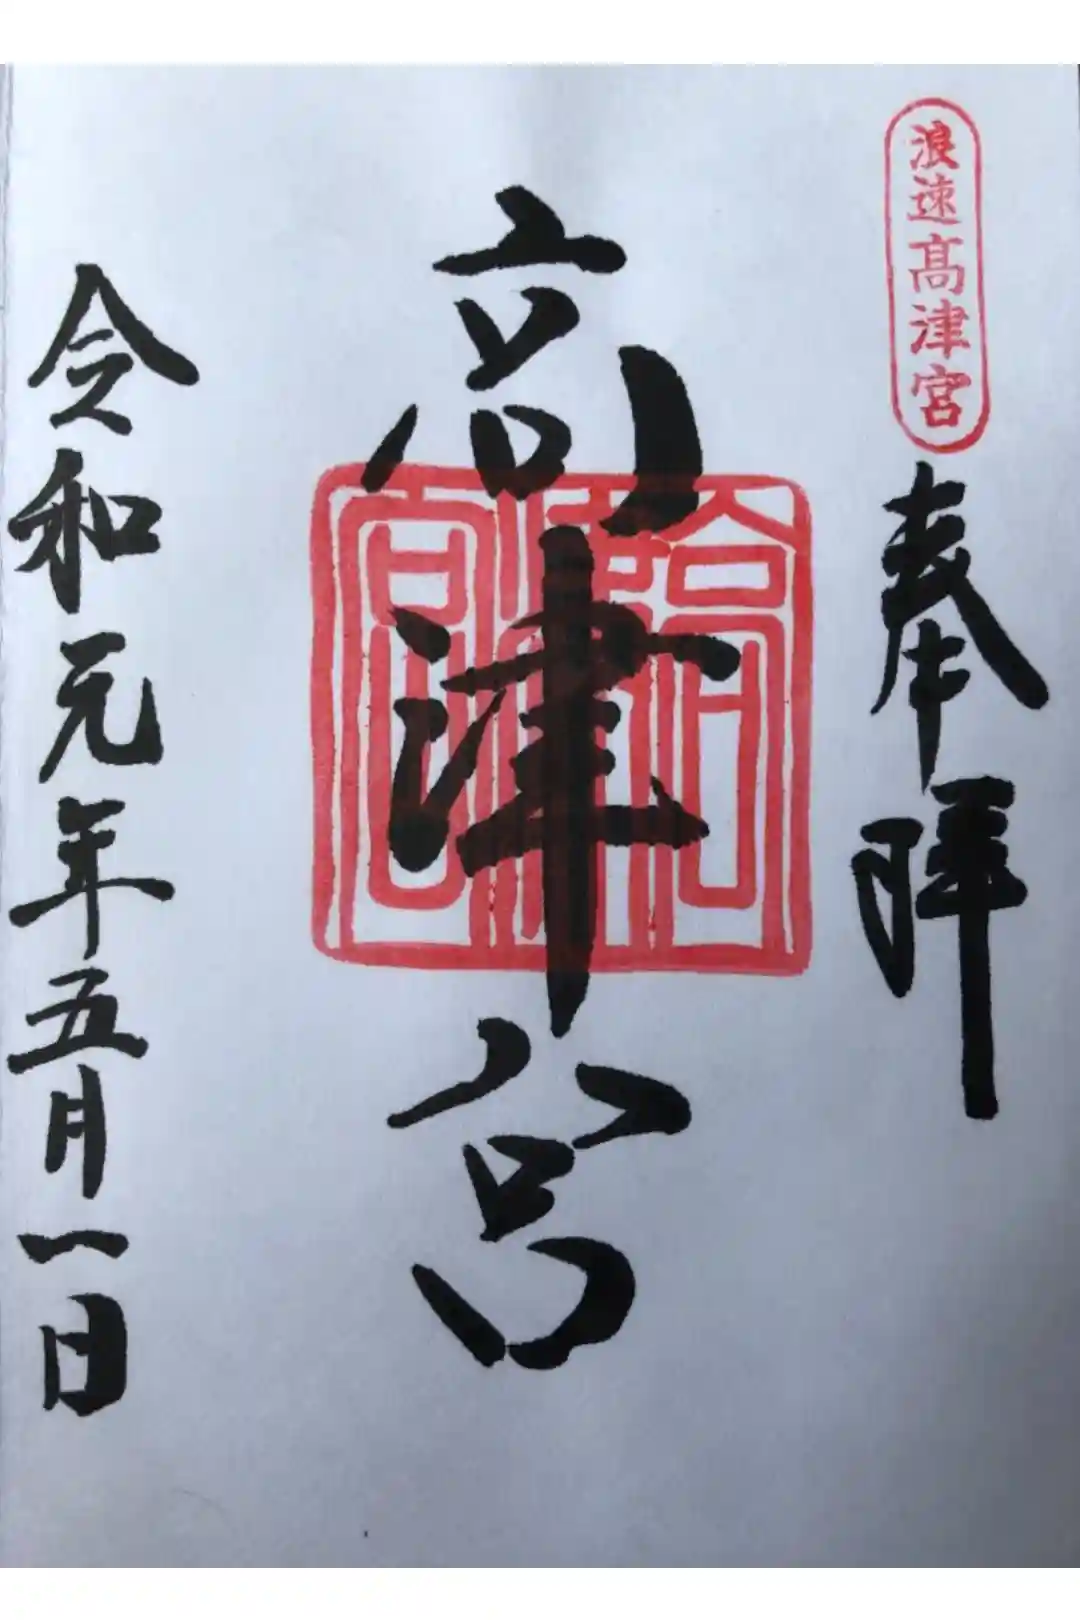 浪速高津宮
奉拝
高津宮
高津宮
令和元年五月一日